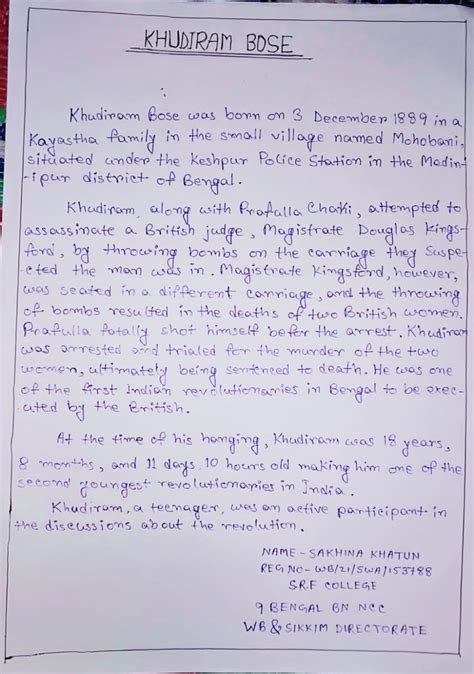 KHUDIRAM BOSE
Khudiram Bose was born on 3 December 1889 in a
Kayastha family in the small village named Mohobani,
situated under the Keshpur Police Station in the Medin-
-ipur district of Bengal.
Khudiram, along with Prafulla Chaki, attempted to
assassinate a British judge, Magistrate Douglas Kings-
ford, by throwing bombs on the carriage they suspe-
-cted the man was in. Magistrate Kingsford, however,
was seated in a different carriage, and the throwing
of bombs resulted in the deaths of two British women.
Prafulla fatally shot himself befor the arrest. Khudiram
was arrested and trialed for the murder of the two
women, ultimately being sentenced to death. He was one
of the first Indian revolutionaries in Bengal to be exec-
-uted by the British.
At the time of his hanging, Khudiram was 18 years,
8 months, and 11 days, 10 hours old making him one of the
second youngest revolutionaries in India.
Khudiram, a teenager, was an active participant in
the discussions about the revolution.
NAME - SAKHINA KHATUN
REG NO - WB/21/SWA/153788
S.R.F COLLEGE
9 BENGAL BN NCC
WB & SIKKIM DIRECTORATE